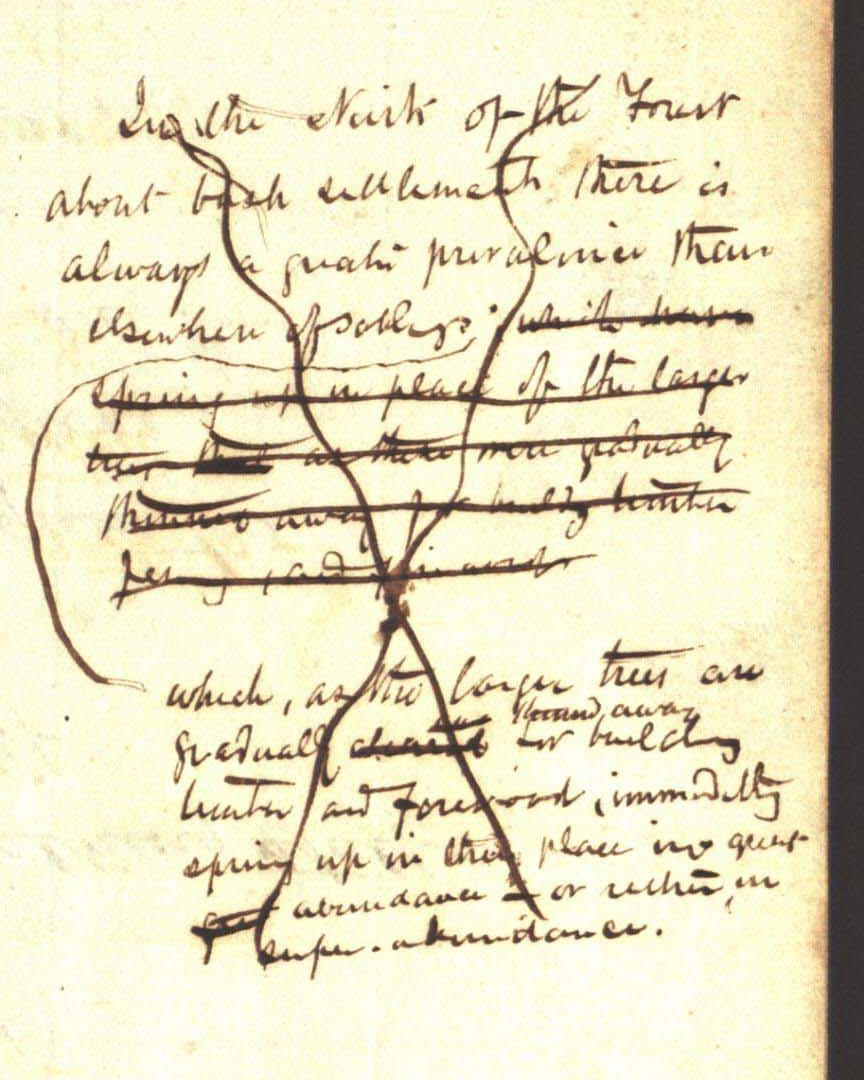 In the skirts of the Forest
about bush settlements there is
always a greater prevalence than
elsewhere of saplings; which have
spring up in place of the larger
trees that as these were gradually
thinned away for building timber
fencing, and firewood
which, as the larger trees are
gradually cleared thinned away for building
timber and firewood, immediately
spring up in their place in great
abundance – or rather, in
super-abundance.